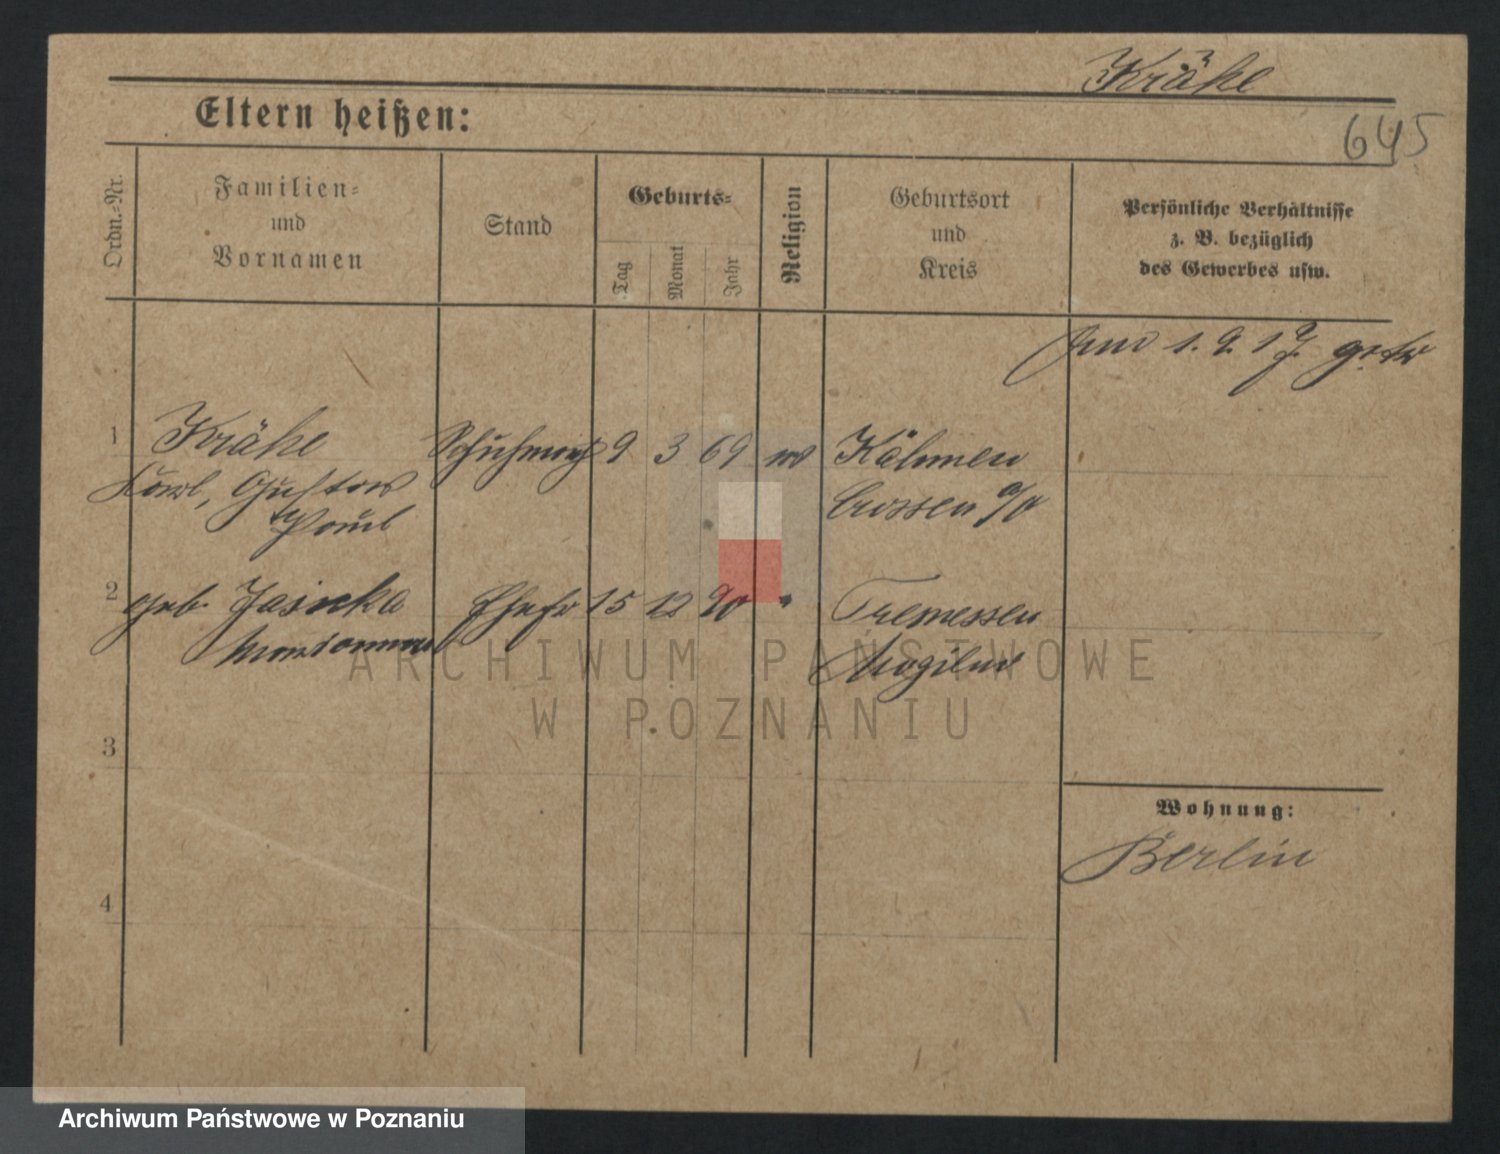 Krähe
645
Eltern heißen:
Ordn.-Nr.
Familien-
und
Vornamen
Stand
Geburts-
Tag
Monat
Jahr
Religion
Geburtsort
und
Kreis
Persönliche Verhältnisse
z. B. bezüglich
des Gewerbes usw.
1. 9. 17. getr
1 Krähe Schuhmach 9 3 69 Kähmen
Karl, Gustav Crossen a/O
Paul
2 geb. Jasicka Ehefr 15 12 90 " Tremessen
Mogilno
3
4
Wohnung:
Berlin
ARCHIWUM PAŃSTWOWE
W POZNANIU
Archiwum Państwowe w Poznaniu